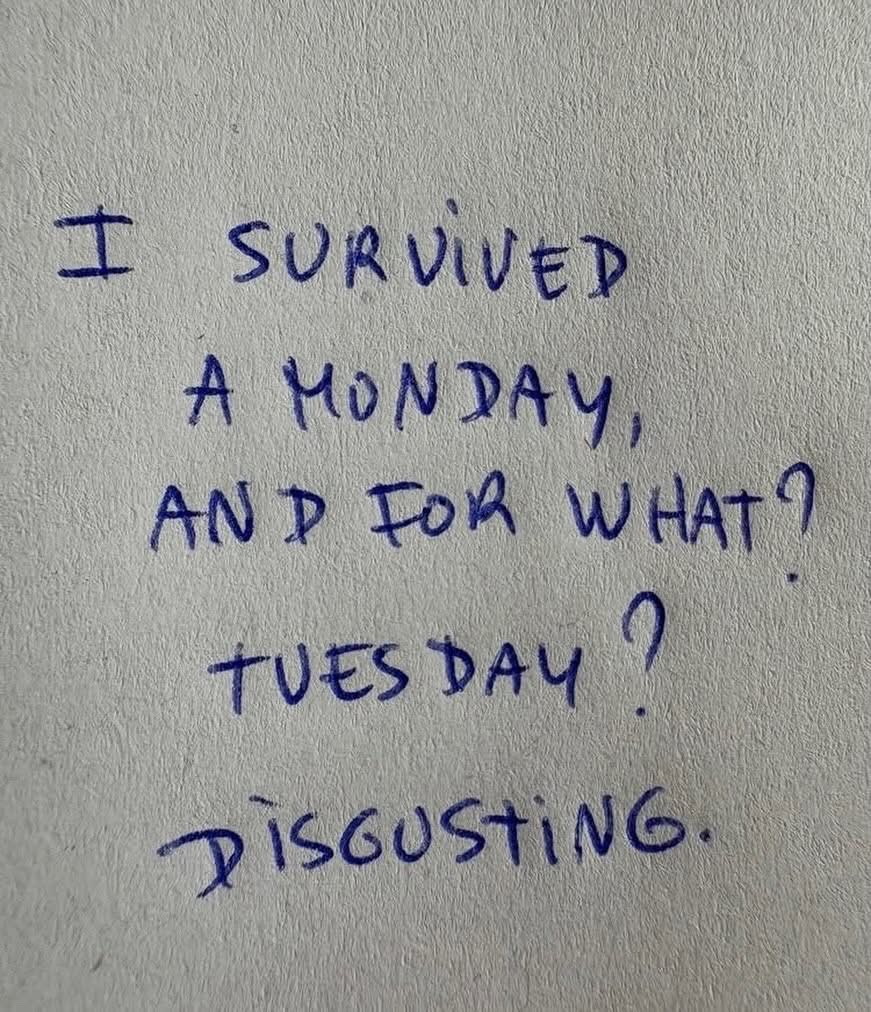 I SURViVED
A MONDAY,
AND FOR WHAT?
TUESDAY?
DiSGUSTiNG.